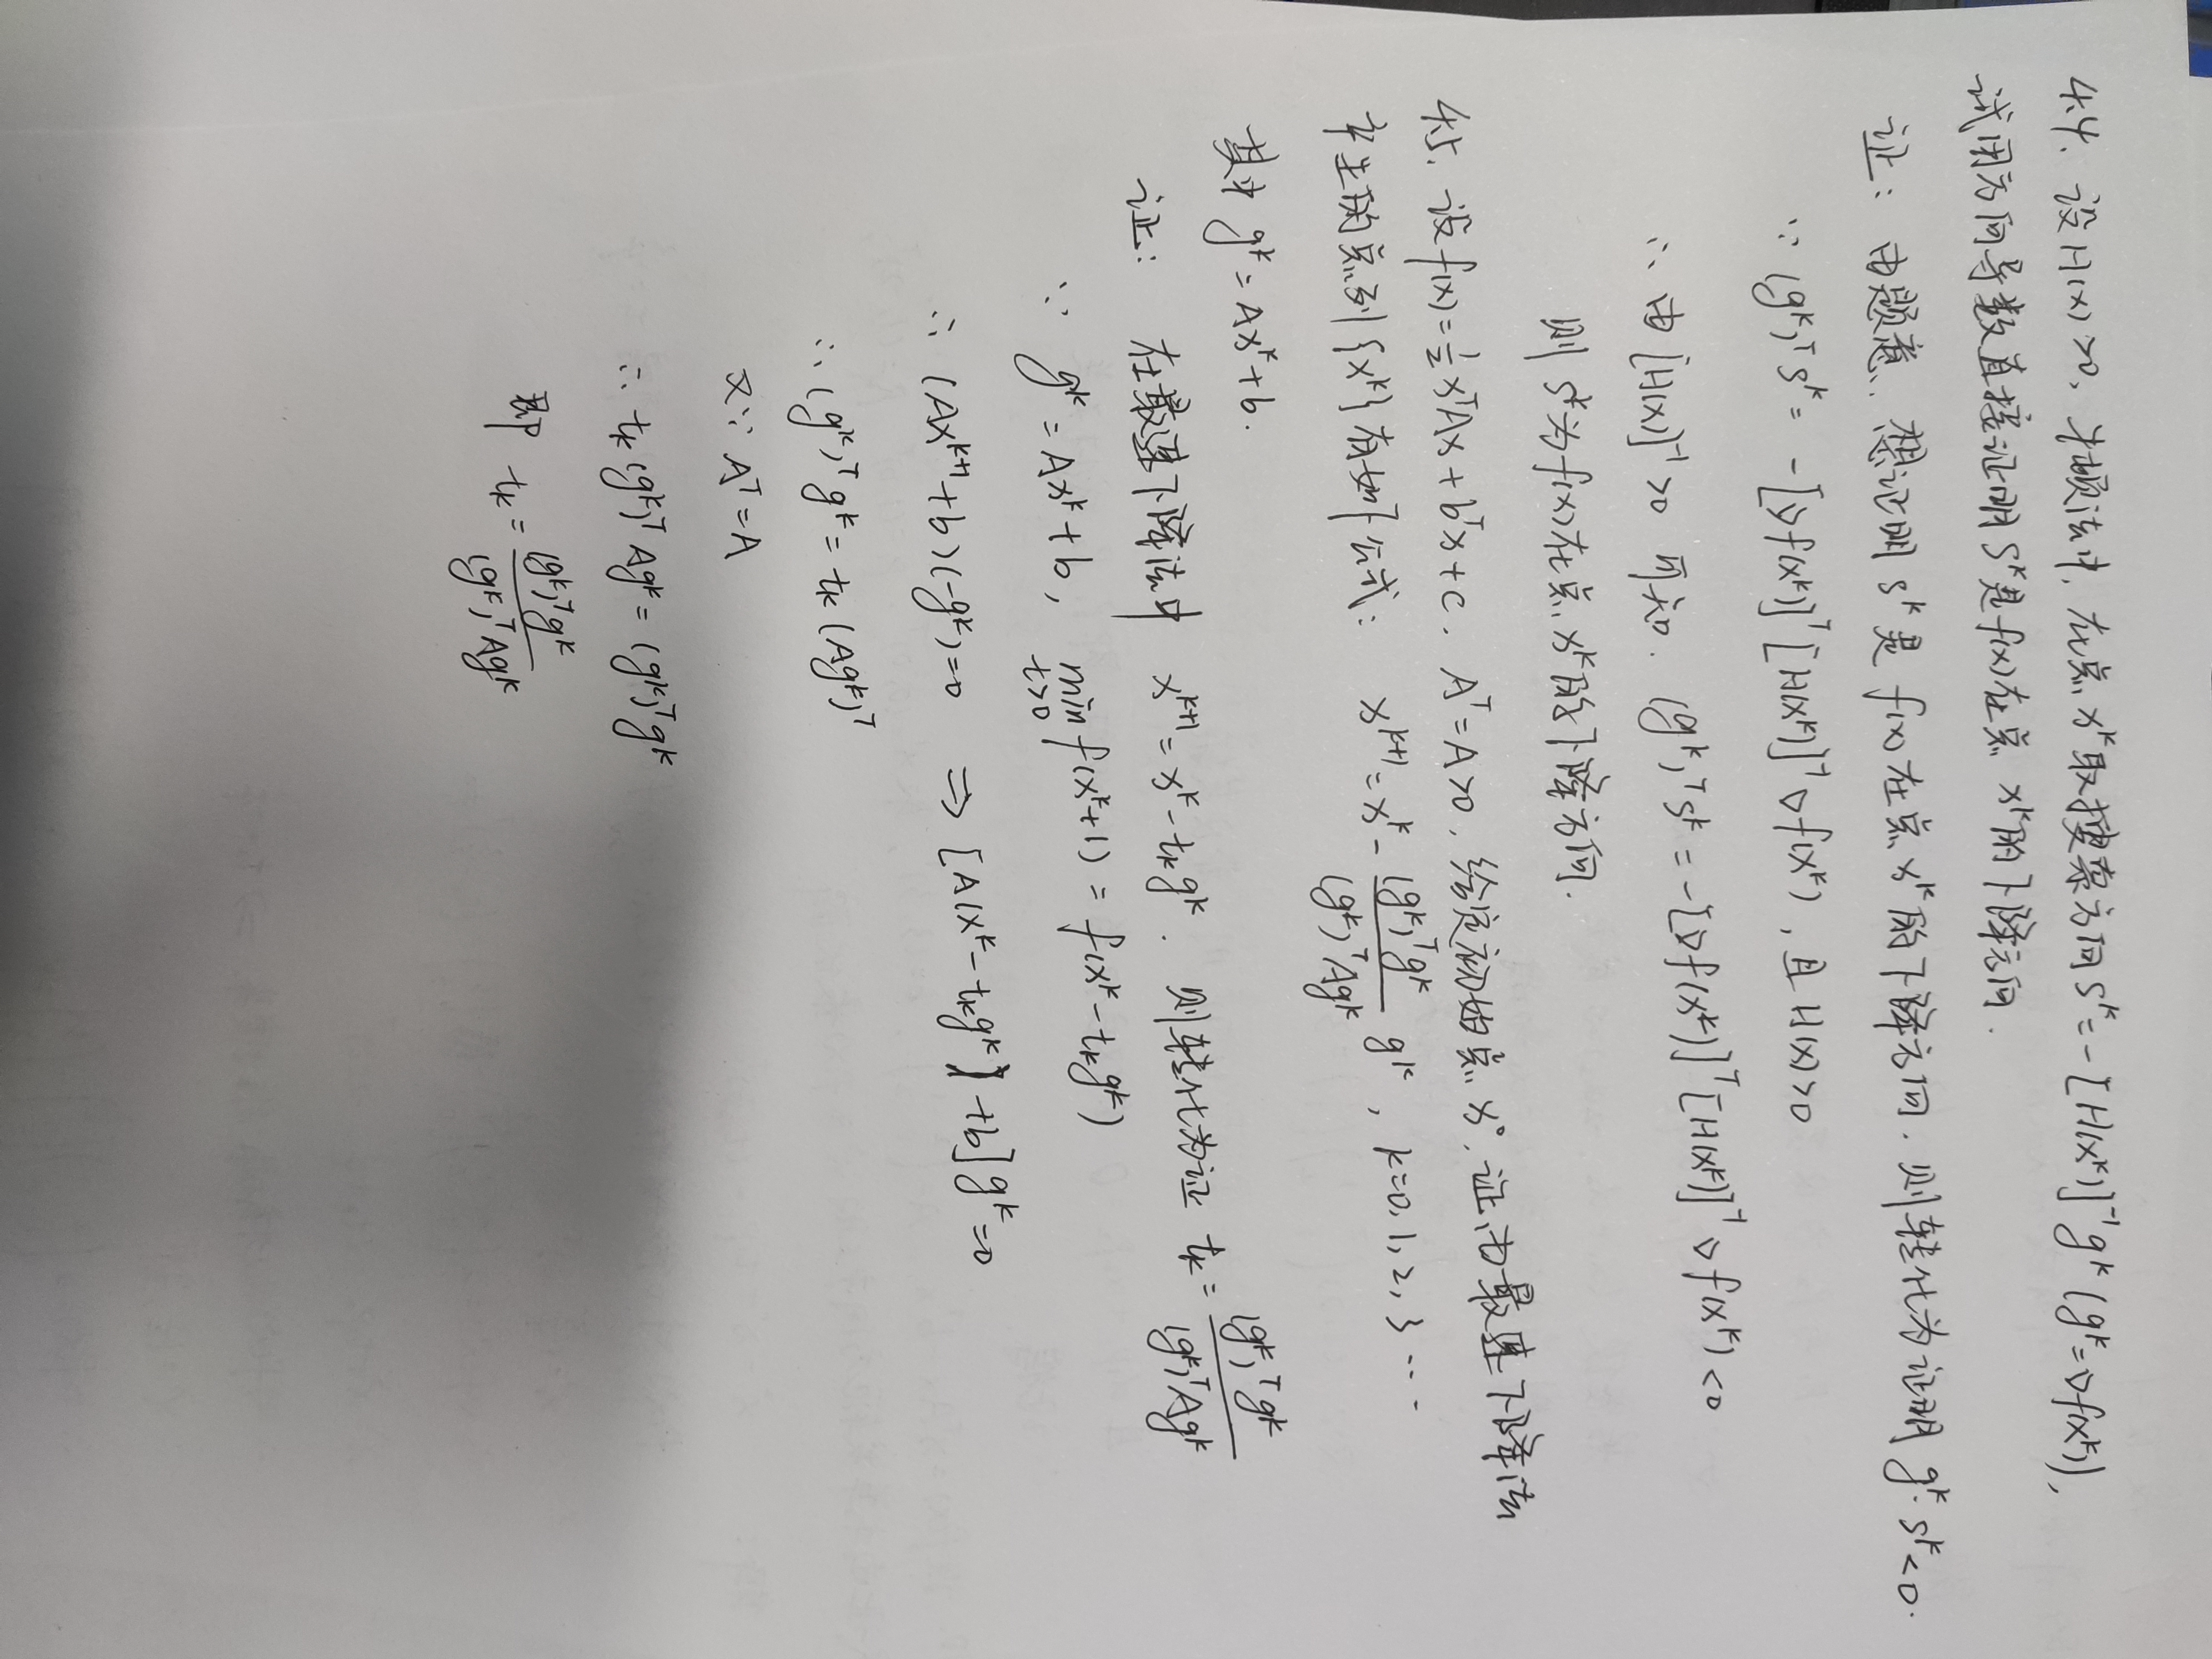 4.4、设H(x)>0, 牛顿法中, 在点x^k取搜索方向S^k=-[H(x^k)]^{-1}g^k (g^k=∇f(x^k)),
试用方向导数直接证明S^k是f(x)在点x^k的下降方向.
证: 由题意, 想证明S^k是f(x)在点x^k的下降方向. 则转化为证明 g^k·S^k<0.
∵ (g^k)^T S^k = -[∇f(x^k)]^T [H(x^k)]^{-1} ∇f(x^k), 且H(x)>0
∴ 由[H(x)]^{-1}>0 可知. (g^k)^T S^k = -[∇f(x^k)]^T [H(x^k)]^{-1} ∇f(x^k) <0
则 S^k为f(x)在点x^k的下降方向.
4.5、设f(x)=½x^TAx+b^Tx+c, A^T=A>0, 给定初始点x^0, 证由最速下降法
产生的点列{x^k}有如下公式: x^{k+1}=x^k-\frac{(g^k)^Tg^k}{(g^k)^TAg^k} g^k, k=0,1,2,3…
其中 g^k=Ax^k+b.
证: 在最速下降法中 x^{k+1}=x^k-t_kg^k. 则转化为证 t_k=\frac{(g^k)^Tg^k}{(g^k)^TAg^k}
∵ g^k=Ax^k+b, \min_{t>0} f(x^k+1)=f(x^k-t_kg^k)
∴ (Ax^{k+1}+b)(-g^k)=0 ⇒ [A(x^k-t_kg^k)+b]g^k=0
∴ (g^k)^Tg^k=t_k(Ag^k)^T
又∵ A^T=A
∴ t_k(g^k)^TAg^k=(g^k)^Tg^k
即 t_k=\frac{(g^k)^Tg^k}{(g^k)^TAg^k}